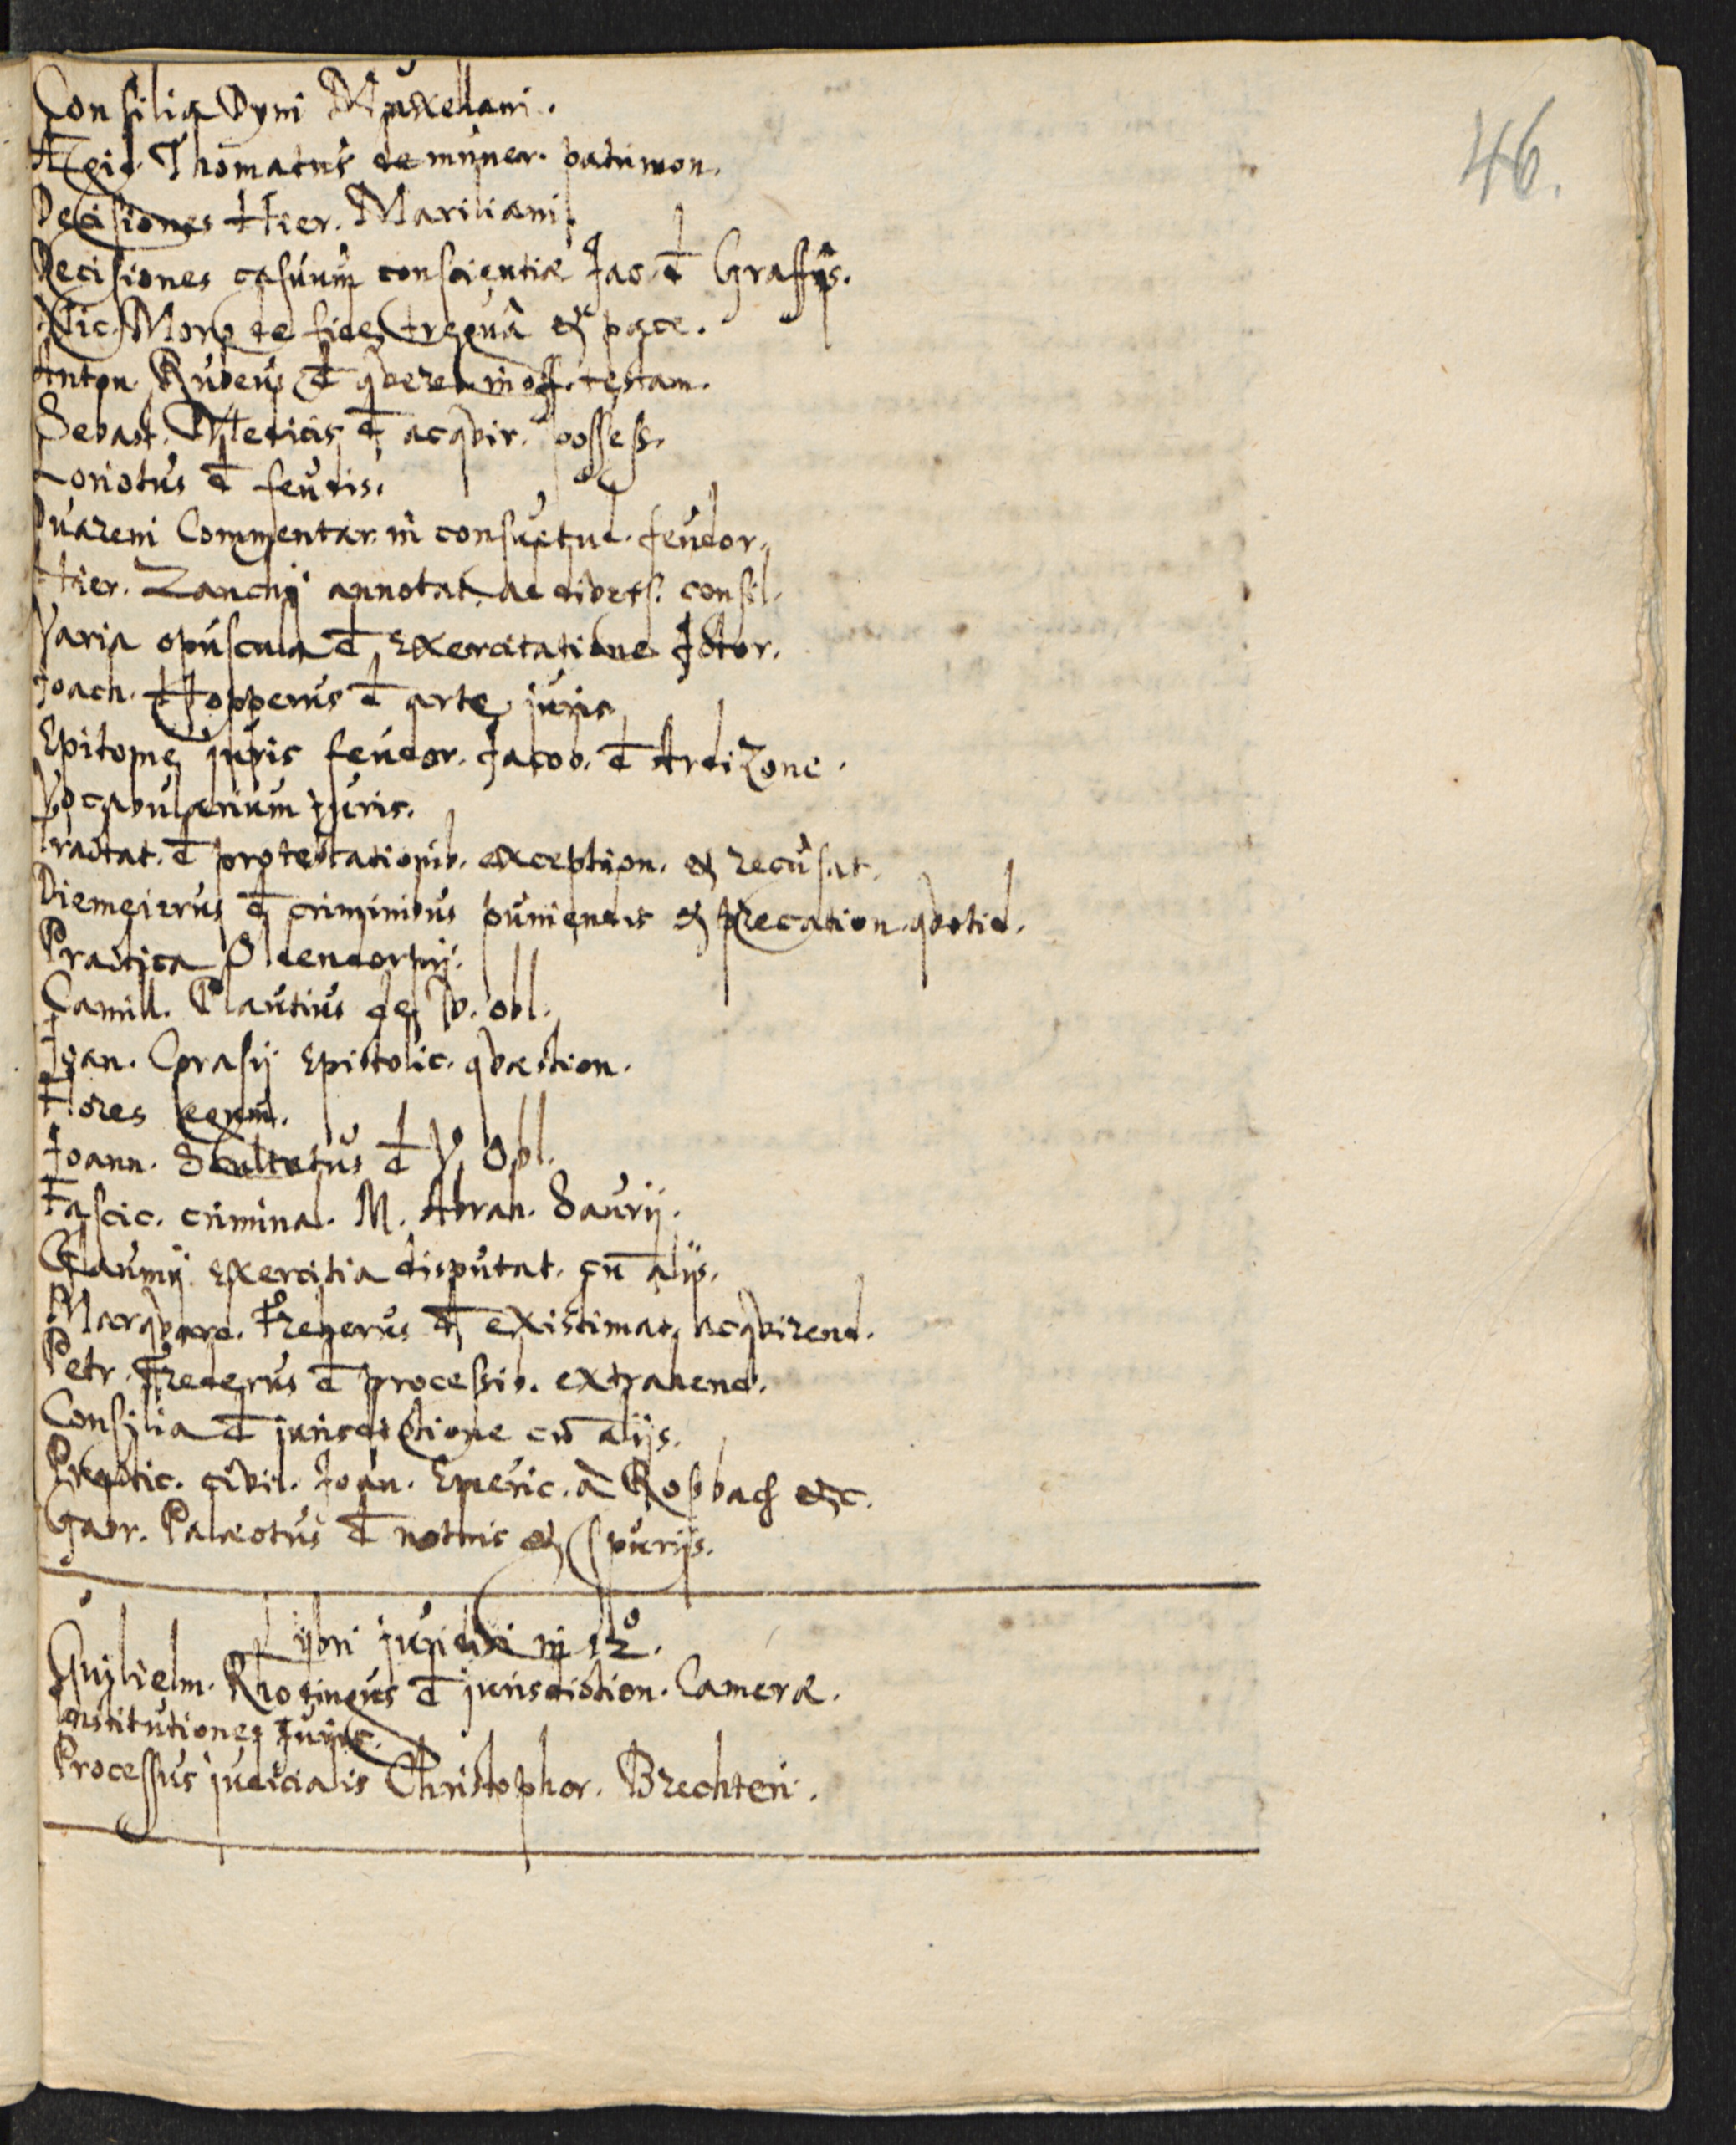 46.
Consilia Dyni Muxellani.
Aegid. Thomatus de muner. patrimon.
Decisiones Hier. Mariliani.
Decisiones casuum conscientiæ Jac. đ Graffijs.
Nic. Moro de fide, tregua & pace.
Anton. Rubeus đ querel. inoff. testam.
Sebast. Medicis đ acquir. possess.
Loriotus đ feudis.
Duareni Commentar. in consuetud. feudor.
Hier. Zanchij annotat. ad divers. consil.
Varia opuscula đ Exercitatione JCtor.
Joach. Hopperus đ arte juris
Epitome juris feudor. Jacob. đ Ardizone.
Vocabularium juris.
Tractat. đ protestationib. exception. & recusat.
Diemeierus đ criminibus puniendis & precation. quotid.
Practica Oldendorpij.
Camill. Plautius de V. obl.
Joan. Corasij Epistolic. quæstion.
Flores legum.
Joann. Scultetus đ V. Obl.
Fascic. criminal. M. Abrah. Saurij.
Glaumij Exercitia disputat. cū alijs.
Marquard. Freherus đ existimat. acquirend.
Petr. Frederus đ processib. extrahend.
Consilia đ jurisdictione cū alijs.
Practic. civil. Joan. Emeric. à Rosbach &c.
Gabr. Palæotus đ nothis & spurijs.
Libri juridici in 12º.
Guilielm. Rhodingus đ jurisdiction. Cameræ.
Institutiones Juris.
Processus judicialis Christophor. Brechteri.